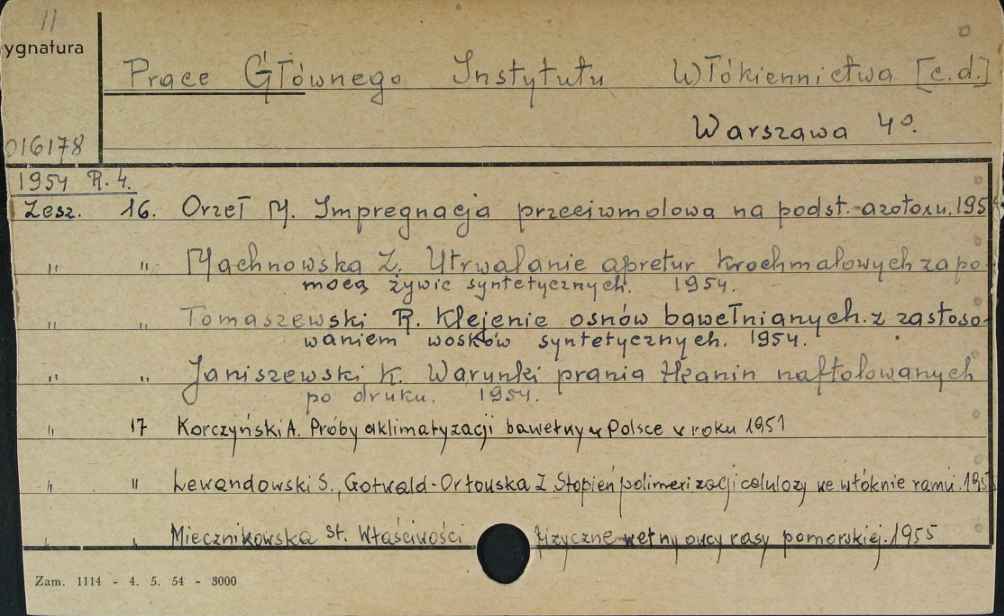 11
ygnatura
Prace Głównego Instytutu Włókiennictwa [c.d.]
Warszawa 4º.
016178
1954 R. 4.
Zesz. 16. Orzeł M. Impregnacja przeciwmolowa na podst. azotoxu. 195
" " Machnowska Z. Utrwalanie apretur krochmalowych za po-
mocą żywic syntetycznych. 1954.
" " Tomaszewski R. Klejenie osnów bawełnianych z zastoso-
waniem wosków syntetycznych. 1954.
" " Janiszewski K. Warunki prania tkanin naftolowanych
po druku. 1954.
" 17 Korczyński A. Próby aklimatyzacji bawełny w Polsce w roku 1951
" " Lewandowski S., Gotwald-Ortowska I Stopień polimeryzacji celulozy we włóknie ramii. 195
" " Miecznikowska St. Właściwości fizyczne wełny owcy rasy pomorskiej. 1955
Zam. 1114 - 4. 5. 54 - 3000